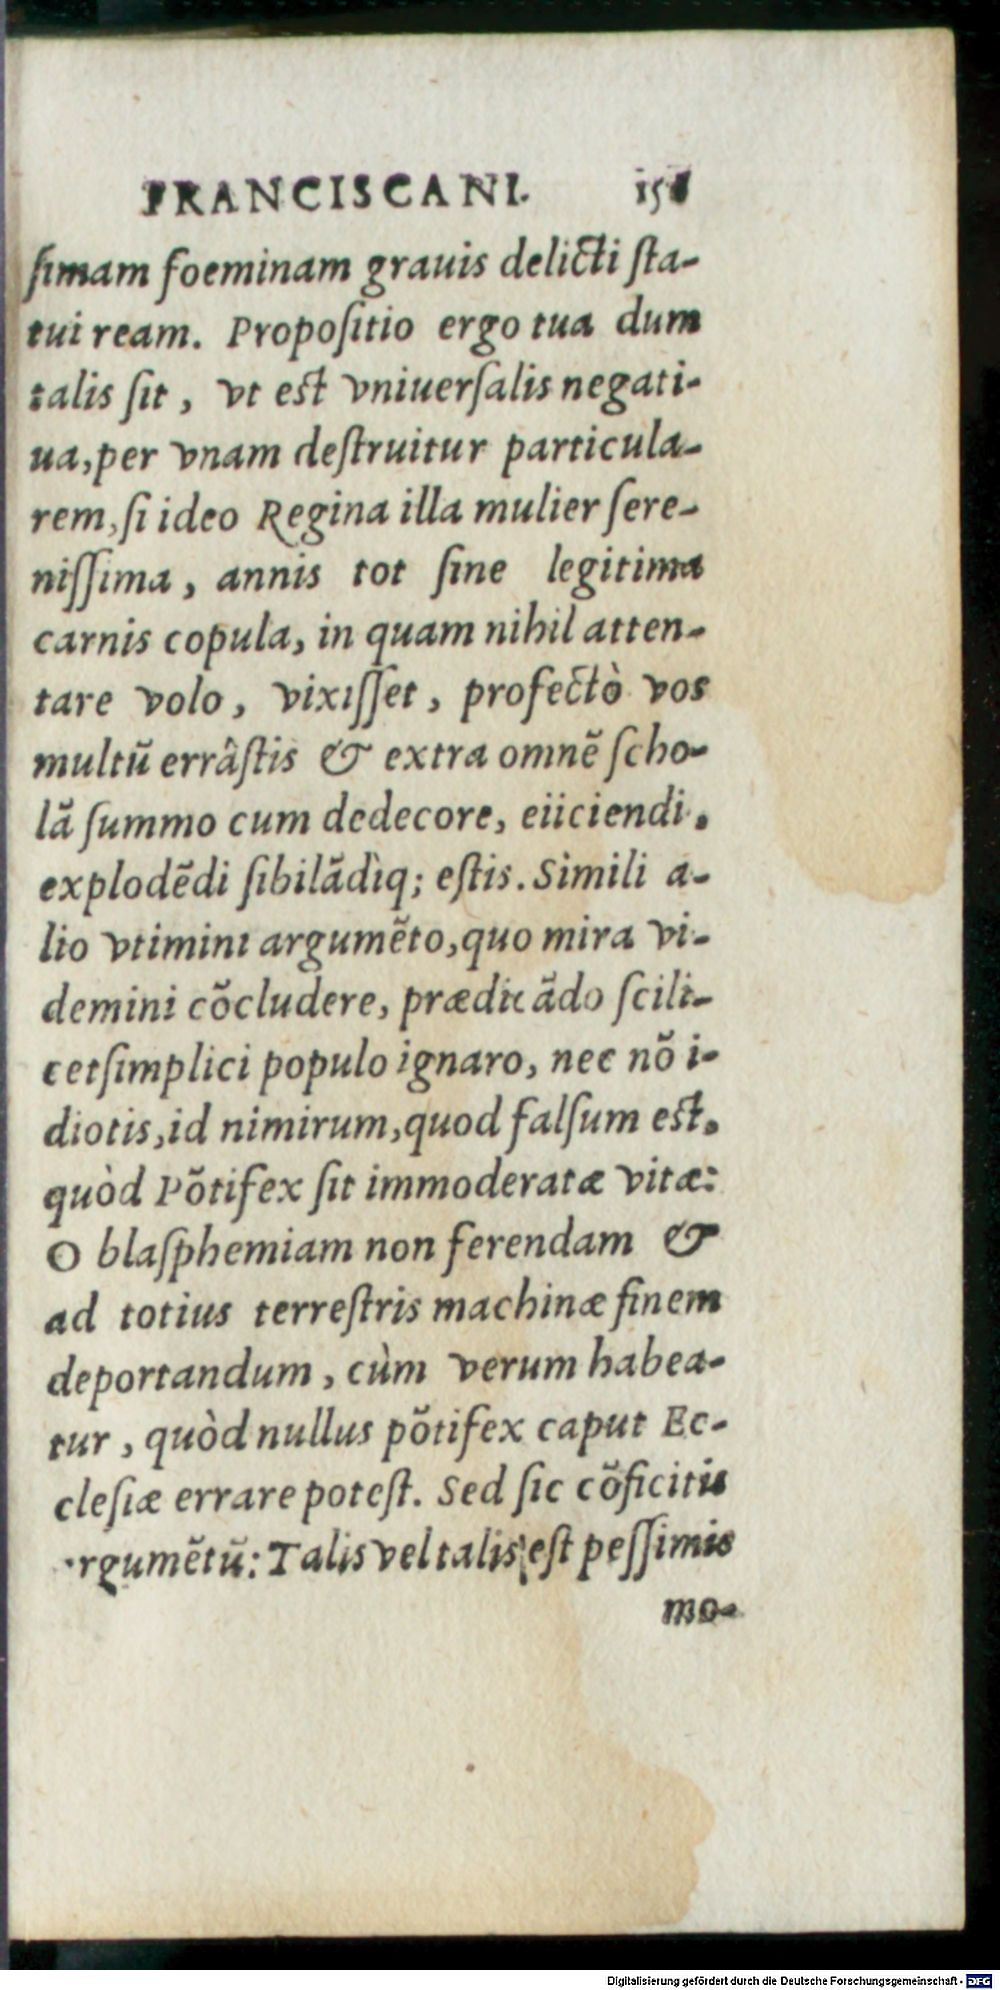 FRANCISCANI.
ſimam foeminam grauis delicti ſta-
tui ream. Propoſitio ergo tua dum
talis ſit, vt est vniuerſalis negati-
ua, per vnam deſtruitur particula-
rem, ſi ideo Regina illa mulier ſere-
niſſima, annis tot ſine legitima
carnis copula, in quam nihil atten-
tare volo, vixiſſet, profectò vos
multũ errâſtis & extra omnẽ ſcho-
lã ſummo cum dedecore, eiiciendi.
explodẽdi ſibilãdiq; eſtis. Simili a-
lio vtimini argumẽto, quo mira vi-
demini cõcludere, prædicãdo ſcili-
cet ſimplici populo ignaro, nec nõ i-
diotis, id nimirum, quod falſum est.
quòd Põtifex ſit immoderatæ vitæ:
O blaſphemiam non ferendam &
ad totius terreſtris machinæ finem
deportandum, cùm verum habea-
tur, quòd nullus põtifex caput Ec-
cleſiæ errare poteſt. Sed ſic cõficitis
argumẽtũ: Talis vel talis eſt peſſimis
mo-
Digitalisierung gefördert durch die Deutsche Forschungsgemeinschaft - DFG